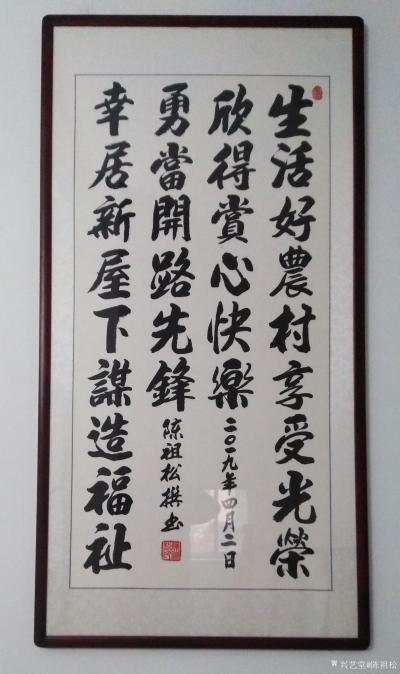 生活好農村享受光榮
欣得賞心快樂
二〇一九年四月二日
勇當開路先鋒
陈祖松撰书
幸居新屋下謀造福祉
兴艺堂@陈祖松